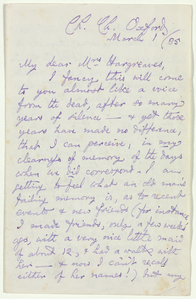 Ch. Ch. Oxford
March 1/85
My dear Mrs Hargreaves,
I fancy this will come
to you almost like a voice
from the dead, after so many
years of silence — & yet those
years have made no difference,
that I can perceive, in my
clearness of memory of the days
when we did correspond. I am
getting to feel what an old man's
failing memory is, as to recent
events & new friends (for instance,
I made friends, only a few weeks
ago, with a very nice little maid
of about 12, & had a walk with
her — & now I can't recall
either of her names!) but my